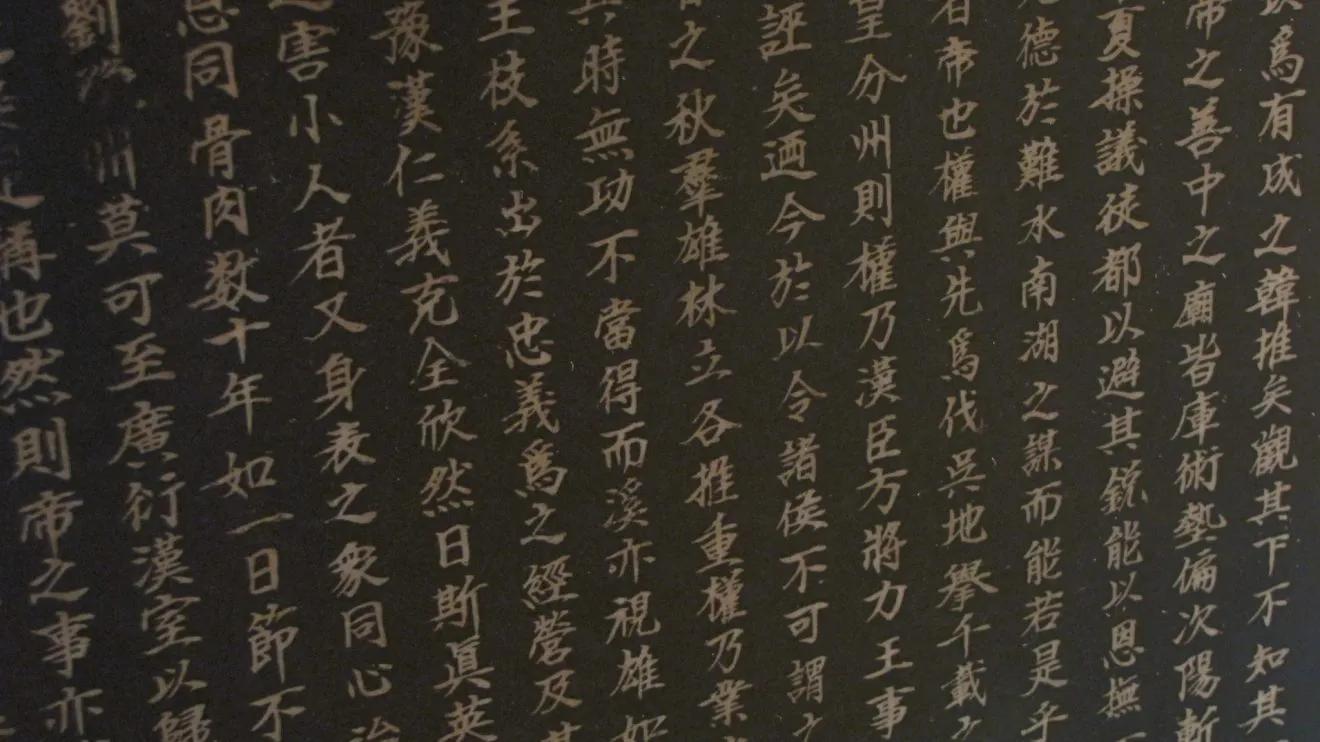 以為有成之韓推矣觀其下不知其
帝之善中之廟皆庫術藝偏次陽斬
夏操議徒都以避其銳能以恩撫
德於難水南湖之謀而能若是乎
者帝也權與先爲伐吳地舉千載之
皇分州則權乃漢臣方將力王事
誣矣迺今於以令諸侯不可謂之
之秋羣雄林立各推重權乃業
其時無功不當得而溪亦視雄如
王枝系出於忠義爲之經營及其
豫漢仁義克全欣然日斯眞英
之害小人者又身表之象同心治
恩同骨肉数十年如一日節不
劉 州莫可至廣衍漢室以歸
之稱也然則帝之事亦